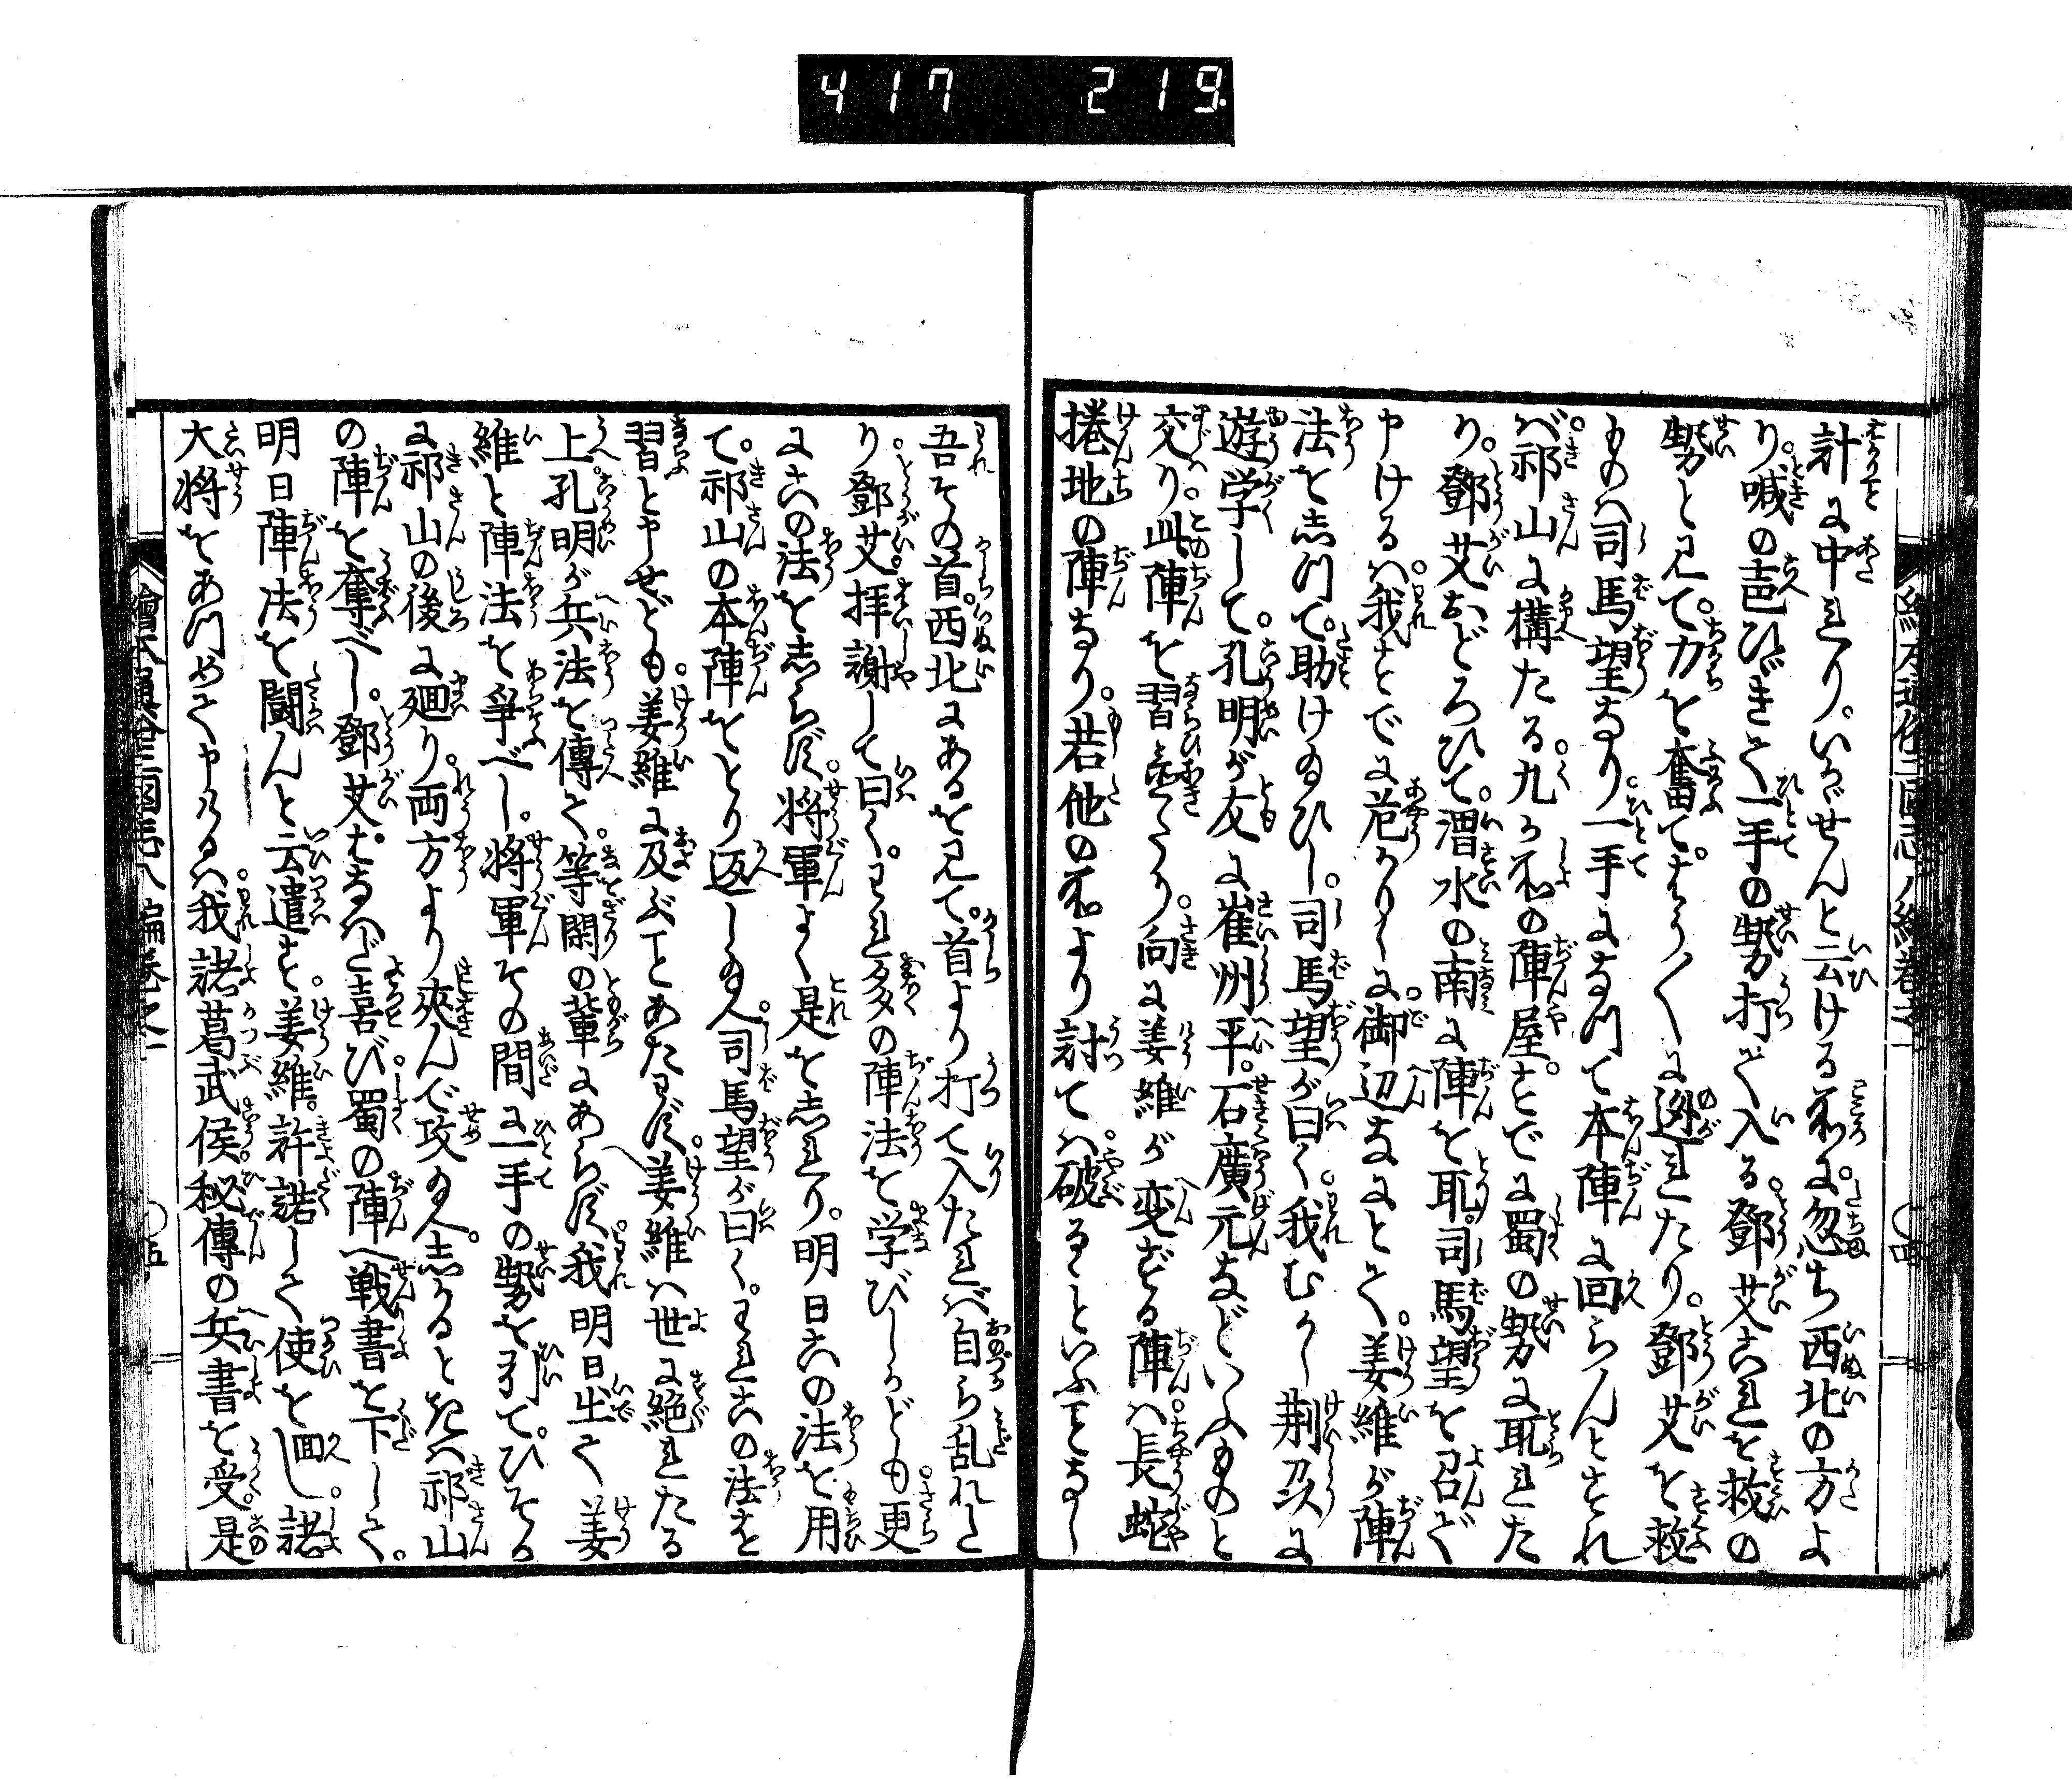 417 219
計に中れり。いかゞせんと云ける所に。忽ち西北の方よ
り。喊の声ひゞきて一手の勢打て入る。鄧艾これを救の
勢と見て。力を奮て。やう〱に遁れたり。鄧艾を救
ものハ司馬望なり。一手になつて本陣に回らんとすれ
バ。祁山に構たる。九か所の陣屋。すでに蜀の勢に取れた
り。鄧艾おどろひて。渭水の南に陣を取。司馬望を召ぞ
申けるハ。我すでに危かりしに。御辺なにとて。姜維が陣
法をしつて。助け給ひし。司馬望が曰く。我むかし荆州に
遊学して。孔明が友に崔州平。石廣元などいふものと
交り。此陣を習置たり。向に姜維が変ずる陣ハ。長蛇
捲地の陣なり。若他の所より討てハ。破るゝといふことなし
吾その首。西北にあるを見て。首より打て入たれバ自ら乱れた
り。鄧艾。拝謝して曰く。われ多の陣法を学びしかども。更
にこの法をしらず。将軍よく是をしれり。明日この法を用
て。祁山の本陣をとり返し給へ。司馬望が曰く。われこの法を
習と申せども。姜維に及ぶことあたはず。姜維ハ世に絶れたる
上。孔明が兵法を傳て。等閑の輩にあらず。我明日出て姜
維と陣法を爭べし。将軍その間に一手の勢を引て。ひそか
に祁山の後に廻り。両方より夾んで攻給へ。しかるときハ祁山
の陣を奪べし。鄧艾はなハだ喜び。蜀の陣へ戦書を下して。
明日陣法を闘んと云遣す。姜維。許諾して使を回し。諸
大将をあつめて申けるハ。我諸葛武侯。秘傳の兵書を受。是
繪本通俗三國志八編巻之一 〇四
繪本通俗三國志八編巻之一 〇五